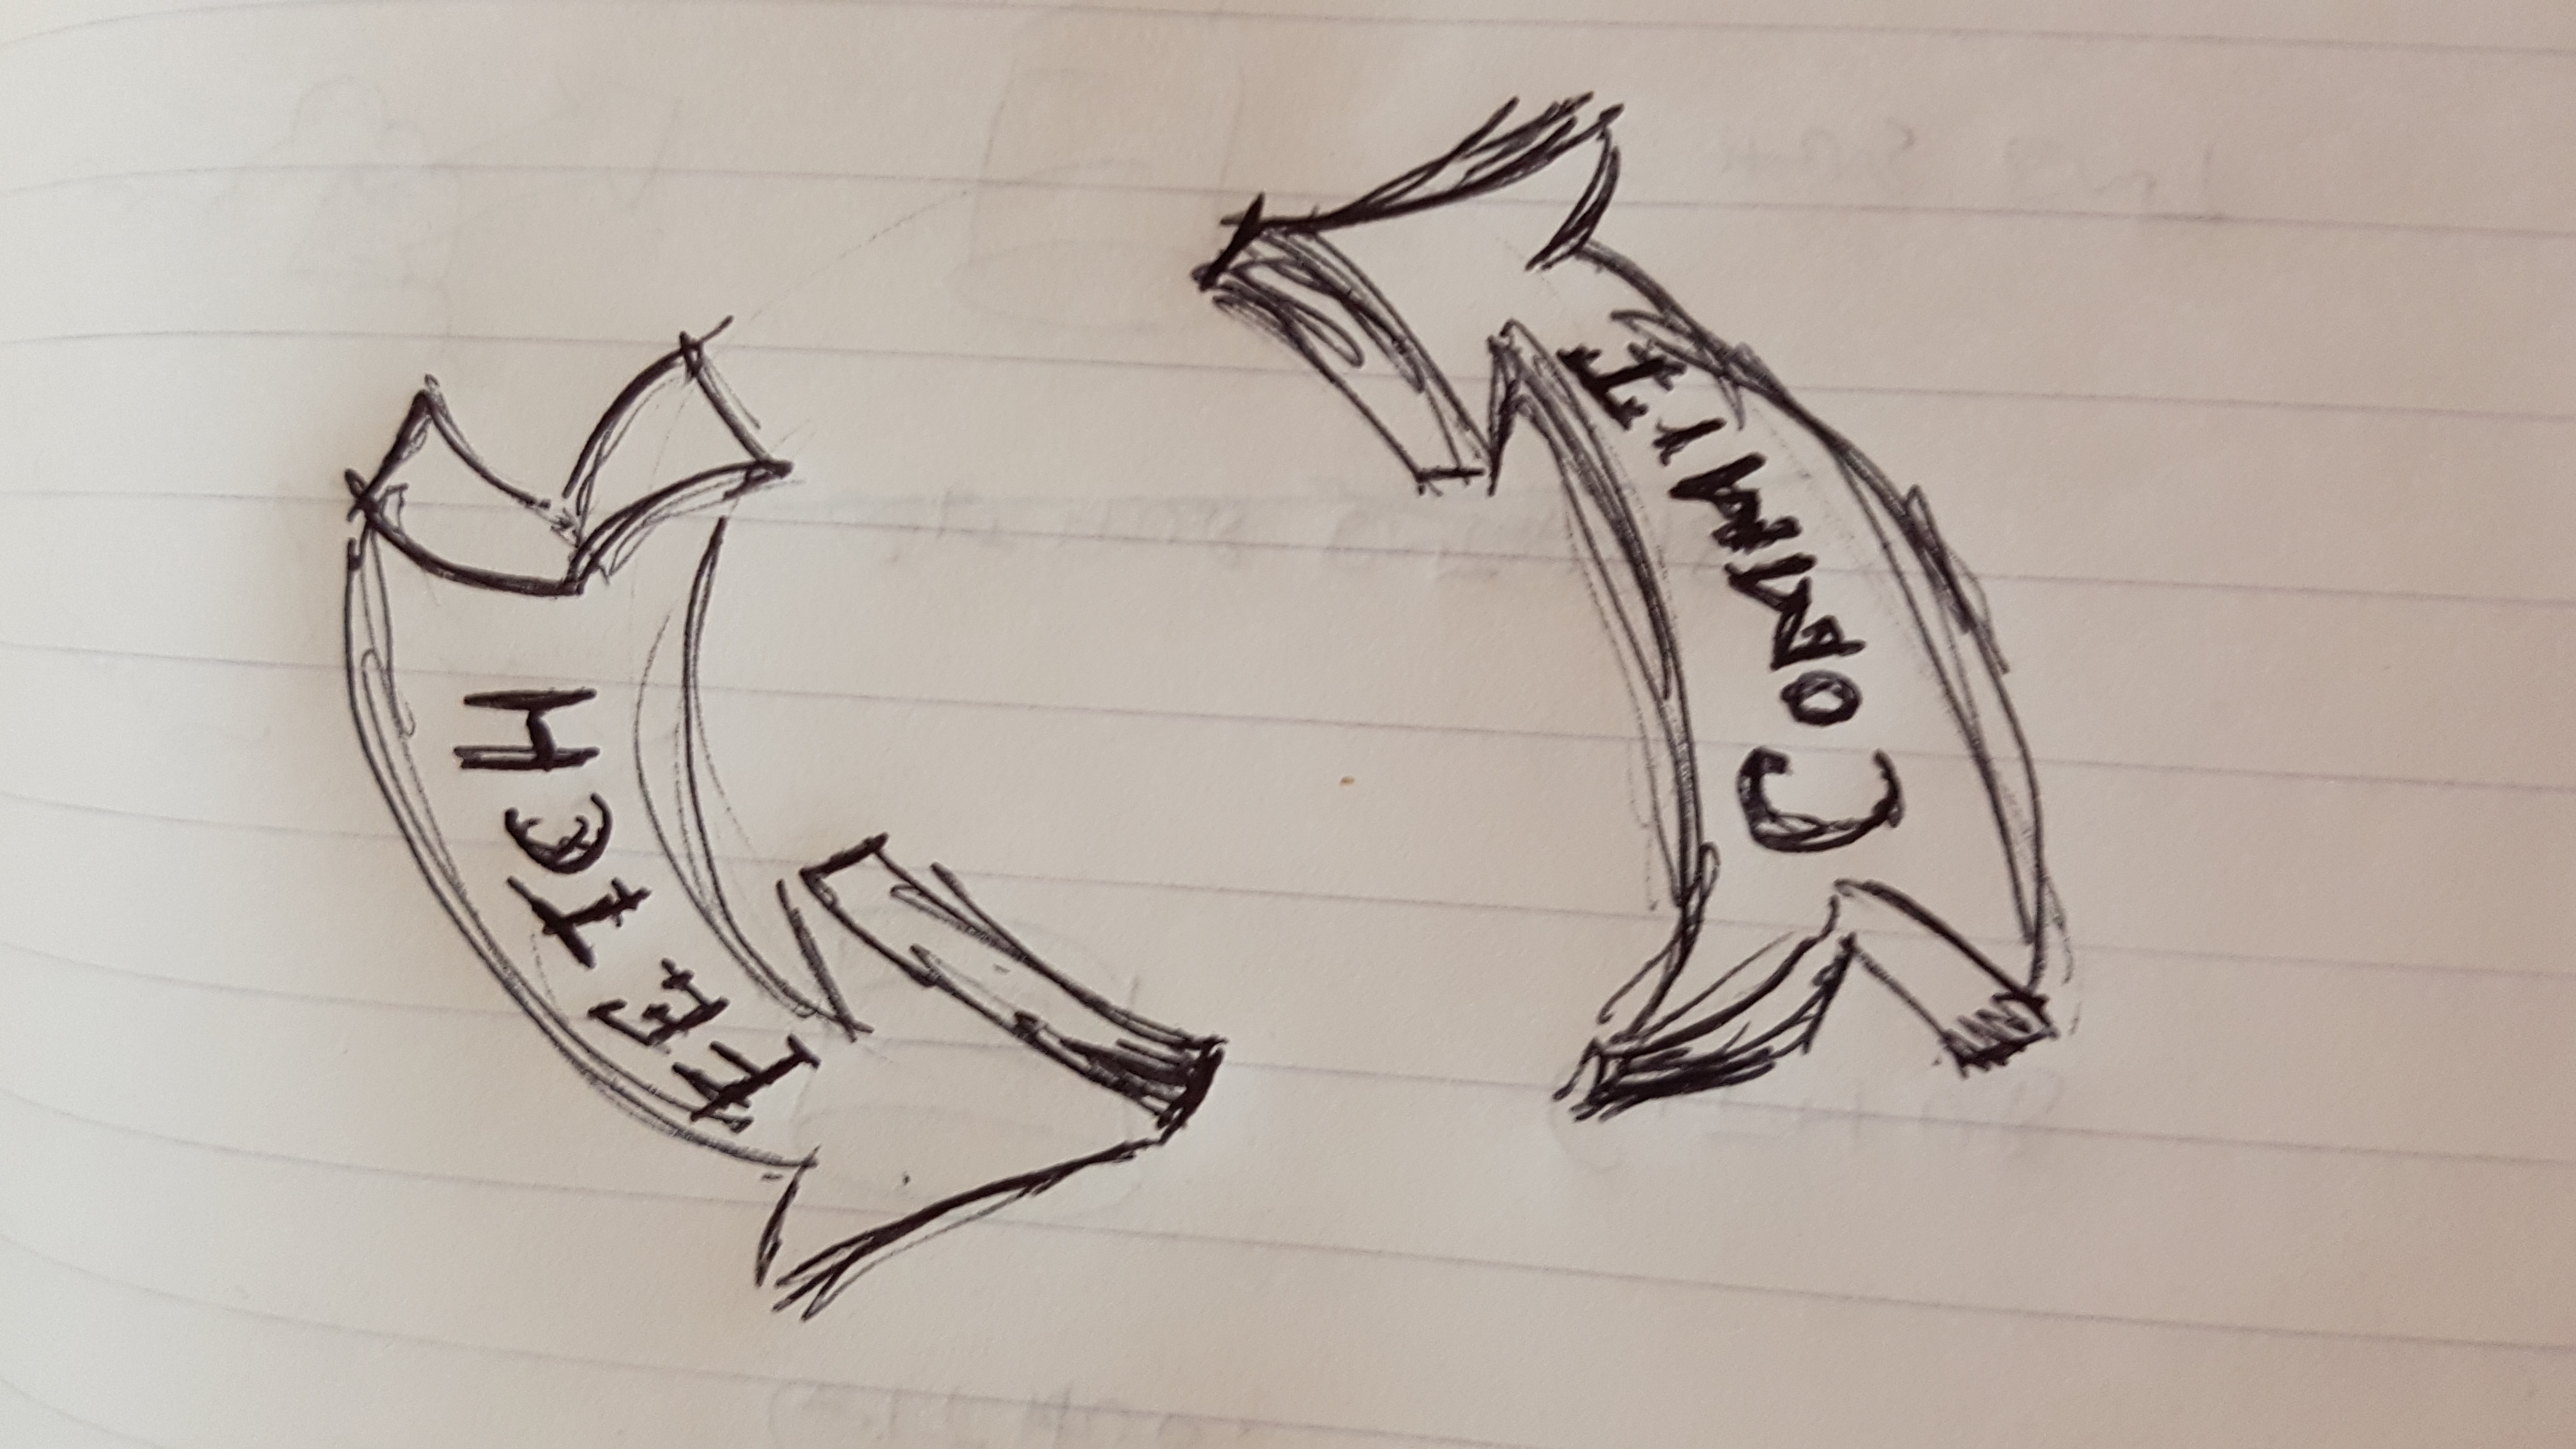 FETCH
COMMIT